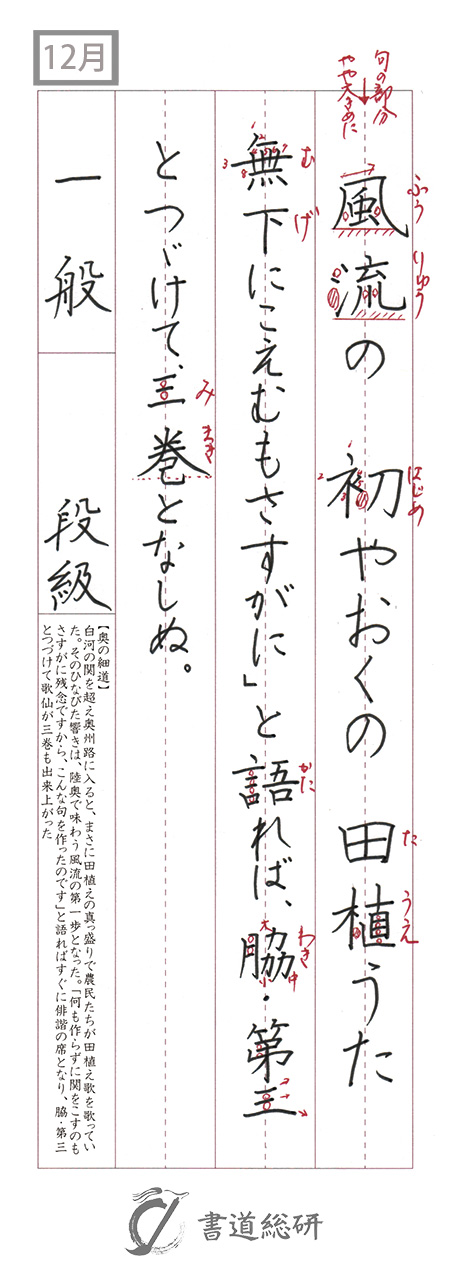 12月
句の部分
やや大きめに
風流の 初やおくの 田植うた
ふう りゅう はじめ た うえ
無下にこえむもさすがに」と語れば、脇・第三
む げ かた わき
大 中 小
とつゞけて、三巻となしぬ。
み まき
一般
段級
【奥の細道】
白河の関を超え奥州路に入ると、まさに田植えの真っ盛りで農民たちが田植え歌を歌ってい
た。そのひなびた響きは、陸奥で味わう風流の第一歩となった。「何も作らずに関をこすのも
さすがに残念ですから、こんな句を作ったのです」と語ればすぐに俳諧の席となり、脇・第三
とつづけて歌仙が三巻も出来上がった
書道総研